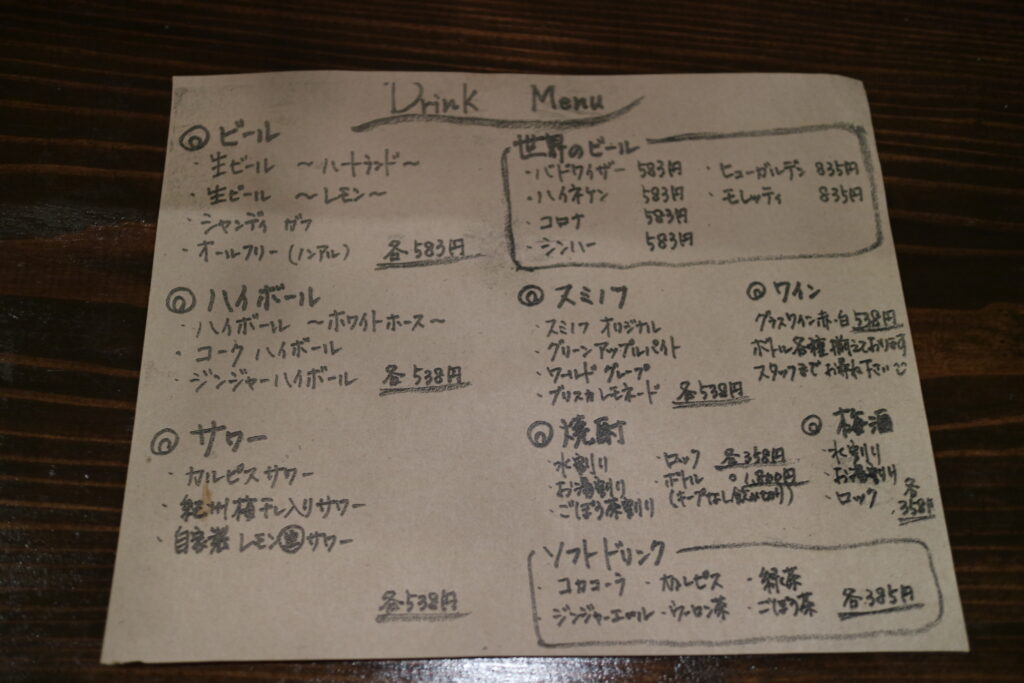 Drink Menu
◎ ビール
・生ビール ～ハートランド～
・生ビール ～レモン～
・シャンディ ガフ
・オールフリー(ノンアル) 各583円
◎ ハイボール
・ハイボール ～ホワイトホース～
・コーク ハイボール
・ジンジャーハイボール 各538円
◎ サワー
・カルピスサワー
・紀州梅干し入りサワー
・自家製 レモン サワー
各538円
世界のビール
・バドワイザー 583円 ・ヒューガルデン 835円
・ハイネケン 583円 ・モレッティ 835円
・コロナ 583円
・シンハー 583円
◎ スミノフ
・スミノフ オリジナル
・グリーンアップルバイト
・ワールド グレープ
・ブリスカレモネード 各538円
◎ ワイン
グラスワイン赤・白 538円
ボトル各種揃えております
スタッフまでお尋ね下さい
◎ 焼酎
・水割り ・ロック 各358円
・お湯割り ・ボトル 1,800円
・ごぼう茶割り (キープなし飲み切り)
◎ 梅酒
・水割り
・お湯割り
・ロック 各358円
ソフトドリンク
・コカコーラ ・カルピス ・緑茶
・ジンジャーエール ・ウーロン茶 ・ごぼう茶 各385円